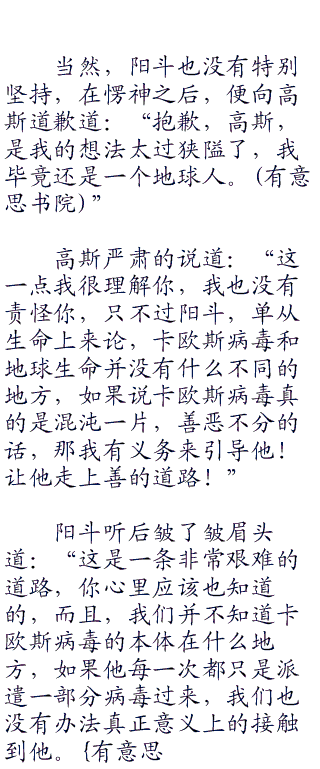 当然，阳斗也没有特别
坚持，在愣神之后，便向高
斯道歉道：“抱歉，高斯，
是我的想法太过狭隘了，我
毕竟还是一个地球人。(有意
思书院)”
高斯严肃的说道：“这
一点我很理解你，我也没有
责怪你，只不过阳斗，单从
生命上来论，卡欧斯病毒和
地球生命并没有什么不同的
地方，如果说卡欧斯病毒真
的是混沌一片，善恶不分的
话，那我有义务来引导他！
让他走上善的道路！”
阳斗听后皱了皱眉头
道：“这是一条非常艰难的
道路，你心里应该也知道
的，而且，我们并不知道卡
欧斯病毒的本体在什么地
方，如果他每一次都只是派
遣一部分病毒过来，我们也
没有办法真正意义上的接触
到他。{有意思